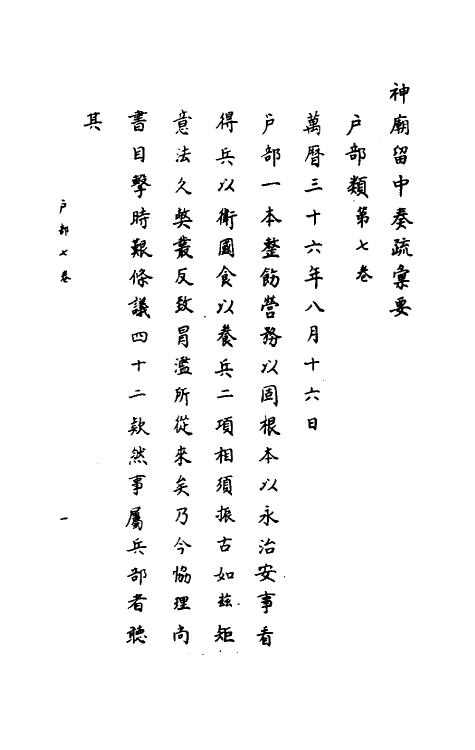 神廟留中奏疏彙要
戶部類第七卷
萬曆三十六年八月十六日
戶部一本整飭營務以固根本以永治安事看
得兵以衛國食以養兵二項相須振古如茲矩
意法久獘叢反致冒濫所從來矣乃今恊理尚
書目擊時艱條議四十二欵然事屬兵部者聽
其
戶部七卷
一